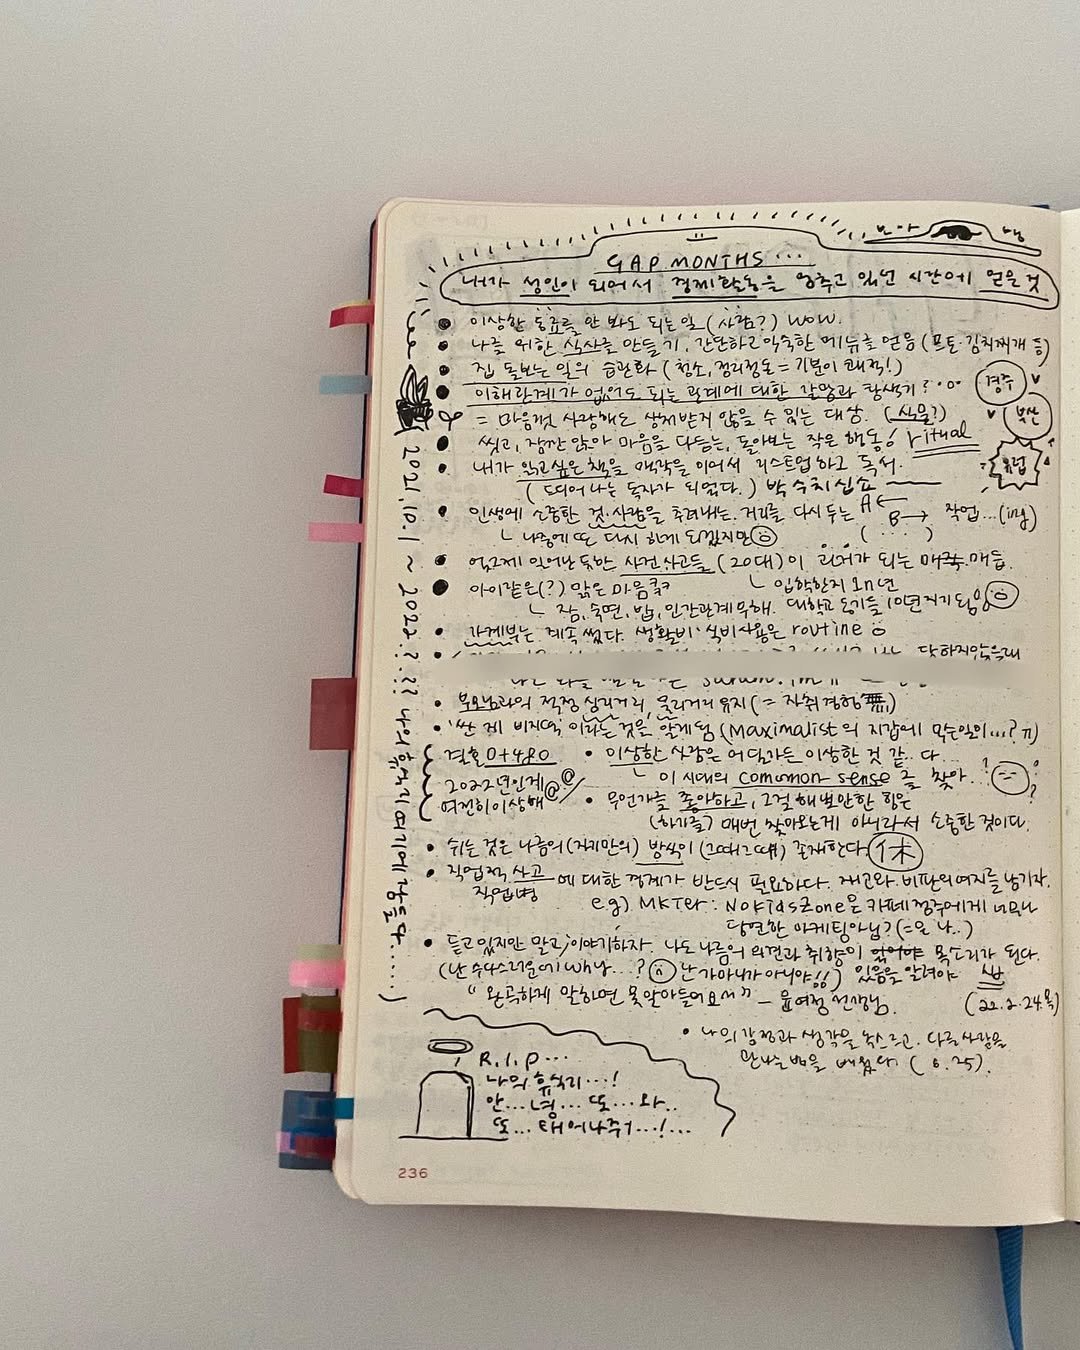 GAP MONTHS...
내가 성인이 되어서 경제활동을 멈추고 있던 시간에 얻은 것
이상한 동료를 안 봐도 되는 일 (사람?) wow.
나를 위한 식사를 만들기, 간단하고 익숙한 메뉴를 얻음 (토토·김치찌개 등)
집 돌보는 일의 습관화 (청소, 정리정돈 = 기분이 쾌적!)
이해관계가 없어도 되는 관계에 대한 갈망과 탐색기?
= 마음껏 사랑해도 상처받지 않을 수 있는 대상. (식물?)
경주
부산
씻고, 잠깐 앉아 마음을 다듬는, 돌아보는 작은 행동! ritual
내가 읽고 싶은 책을 맥락을 이어서 리스트업하고 독서.
(드디어 나는 독자가 되었다.) 박수치십쇼
유럽
인생에 소중한 것·사람을 추려내는. 거리를 다시 두는 A← B→ 작업...(ing)
나중에 또 다시 하게 되겠지만
(....)
엊그제 일어난 듯한 사건사고들 (20대)이 과거가 되는 매듭.
입학한지 10년
아이같은(?) 맑은 마음
잠, 숙면, 밥, 인간관계무해. 대학교 동기들 10년지기 되임
가계부는 계속 썼다. 생활비·식비사용은 routine
부모님과의 적정 심리거리, 물리거리 유지 (= 자취경험 無)
'싼 게 비지떡'이라는 것은 알게됨 (Maximalist의 지갑에 무슨일이...? π)
결혼 0+480
2022년인게 @@
여전히 이상해
이상한 시장은 어딜가든 이상한 것 같.. 다...
이 시대의 comomon sense를 찾아..
무언가를 좋아하고, 그걸 해볼만한 힘은
(하기를) 매번 찾아오는게 아니라서 소중한 것이다.
쉬는 것은 나름의 (자기만의) 방식이 (그때그때) 존재한다. 休
직업적 사고
직업병
에 대한 경계가 반드시 필요하다. 재고와 비판의 여지를 남기자.
eg) MKTer: NokidsZone은 카페점주에게 너무나
당연한 마케팅아님? (=은 나..)
듣고 있지만 말고, 이야기하자. 나도 나름의 의견과 취향이 목소리가 된다.
(난 수다스러운데 why...? 난 가마니가 아니야!!) 있음을 알려야
"완곡하게 말하면 못알아들어요" - 윤여정 선생님.
(22.2.24.목)
나의 감정과 생각을 추스르고, 다른사람을
만나는 법을 배웠다 (6.25).
R.I.P...
나의 휴식기...!
안...녕... 또... 와..
또... 태어나주기...!...
2021.10.1 ~ 2022.?.?? 나의 휴식기 여기에 잠들다.....)
236